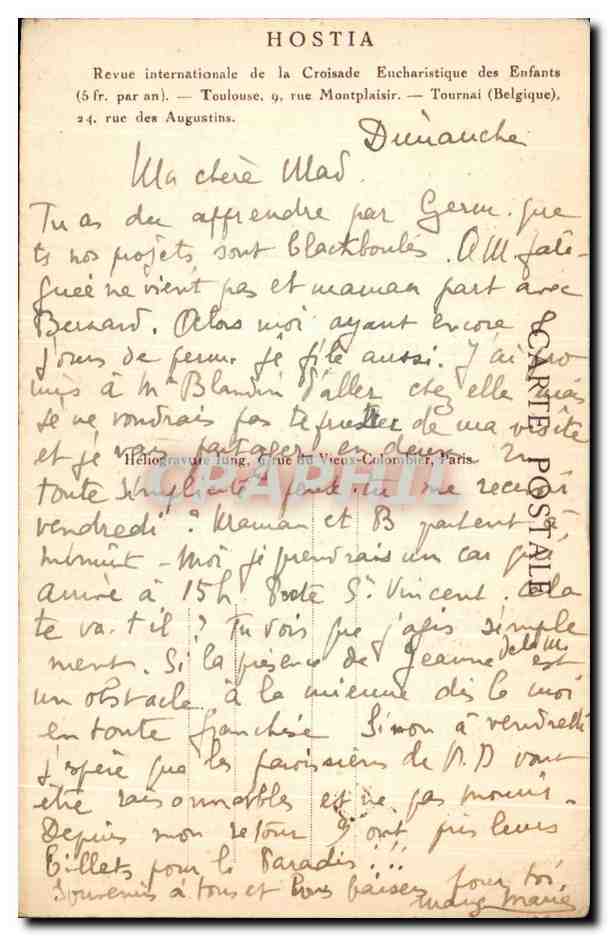 HOSTIA
Revue internationale de la Croisade Eucharistique des Enfants
(5 fr. par an). — Toulouse, 9, rue Montplaisir. — Tournai (Belgique),
24, rue des Augustins.
Dimanche
Ma chère Mad.
Tu as du apprendre par Germ. que
ts nos projets sont blackboulés. A M fati-
guée ne vient pas et maman part avec
Bernard. Alors moi ayant encore 8
jours de perm. je file aussi. J'ai pro
mis à Mme Blandin d'aller chez elle mais
je ne voudrais pas te frustrer de ma visite
et je vais partager en deux. En
Héliogravure Jung, 6, rue du Vieux-Colombier, Paris.
CARTE POSTALE
toute simplicité peux-tu me recevoir
vendredi ? Maman et B partent à
minuit - Moi je prendrais un car qui
arrive à 15h Porte St Vincent. Cela
te va-t-il ? Tu vois que j'agis simple
ment. Si la présence de Jeanne de la M est
un obstacle à la mienne dis le moi
en toute franchise Sinon à vendredi
J'espère que les paroissiens de N.D vont
être raisonnables et ne pas mourir.
Depuis mon retour 9 ont pris leurs
billets pour le Paradis !!!
Souvenirs à tous et bons baisers pour toi
Marie